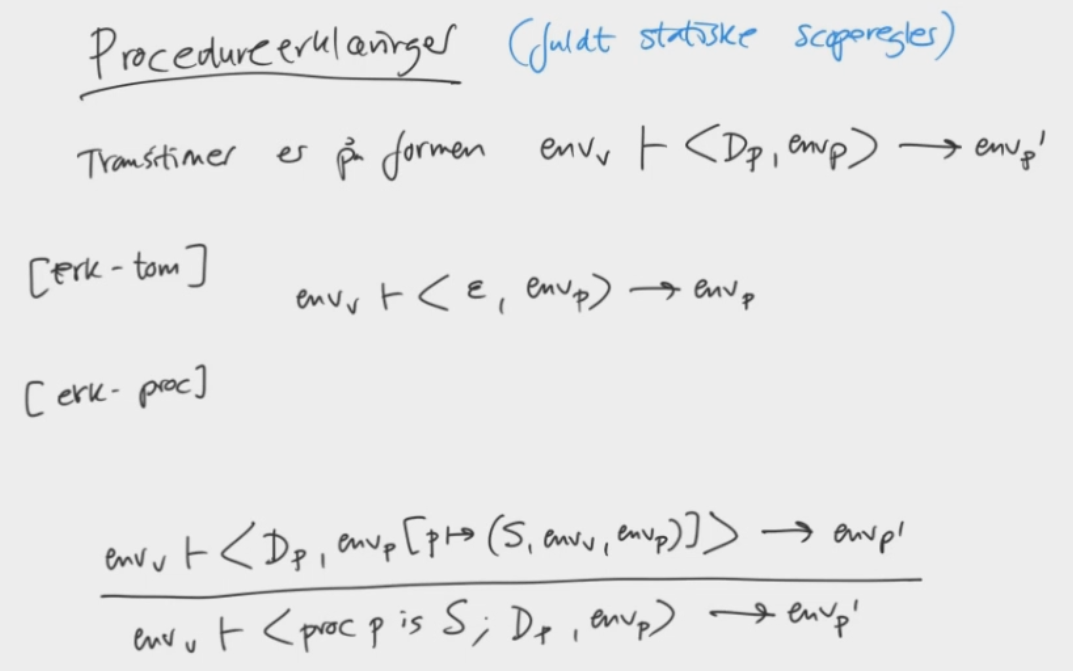 Procedureerklæringer (fuldt statiske scoperegler)
Transitioner er på formen env_v ⊢ <D_p, env_p> → env_p'
[erk-tom]
env_v ⊢ <ε, env_p> → env_p
[erk-proc]
env_v ⊢ <D_p, env_p[p ↦ (S, env_v, env_p)]> → env_p'
env_v ⊢ <proc p is S; D_p, env_p> → env_p'